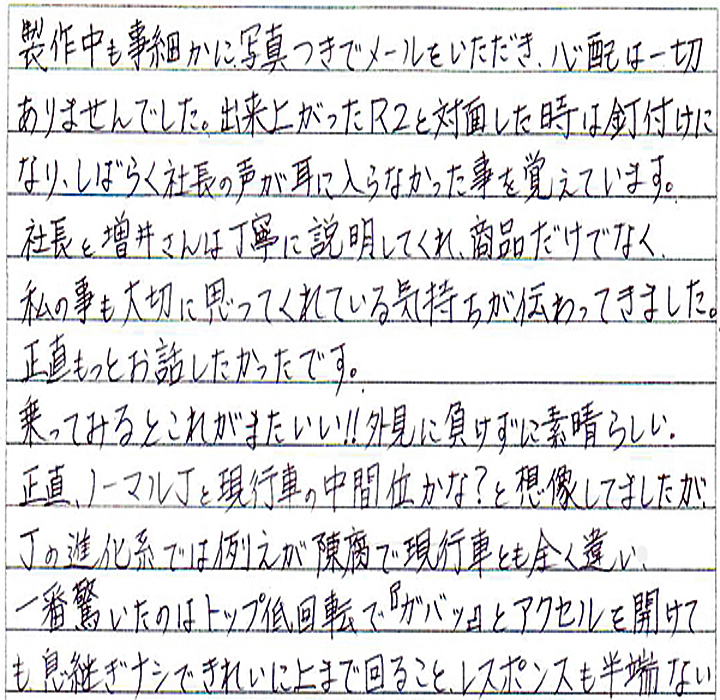 製作中も事細かに写真つきでメールをいただき、心配は一切
ありませんでした。出来上がったR2と対面した時は釘付けに
なり、しばらく社長の声が耳に入らなかった事を覚えています。
社長と増井さんは丁寧に説明してくれ、商品だけでなく、
私の事も大切に思ってくれている気持ちが伝わってきました。
正直もっとお話したかったです。
乗ってみるとこれがまたいい!!外見に負けずに素晴らしい。
正直、ノーマルJと現行車の中間位かな?と想像してましたが、
Jの進化系では例えが陳腐で現行車とも全く違い、
一番驚いたのはトップ低回転で『ガバッ』とアクセルを開けて
も息継ぎナシできれいに上まで回ること、レスポンスも半端ない